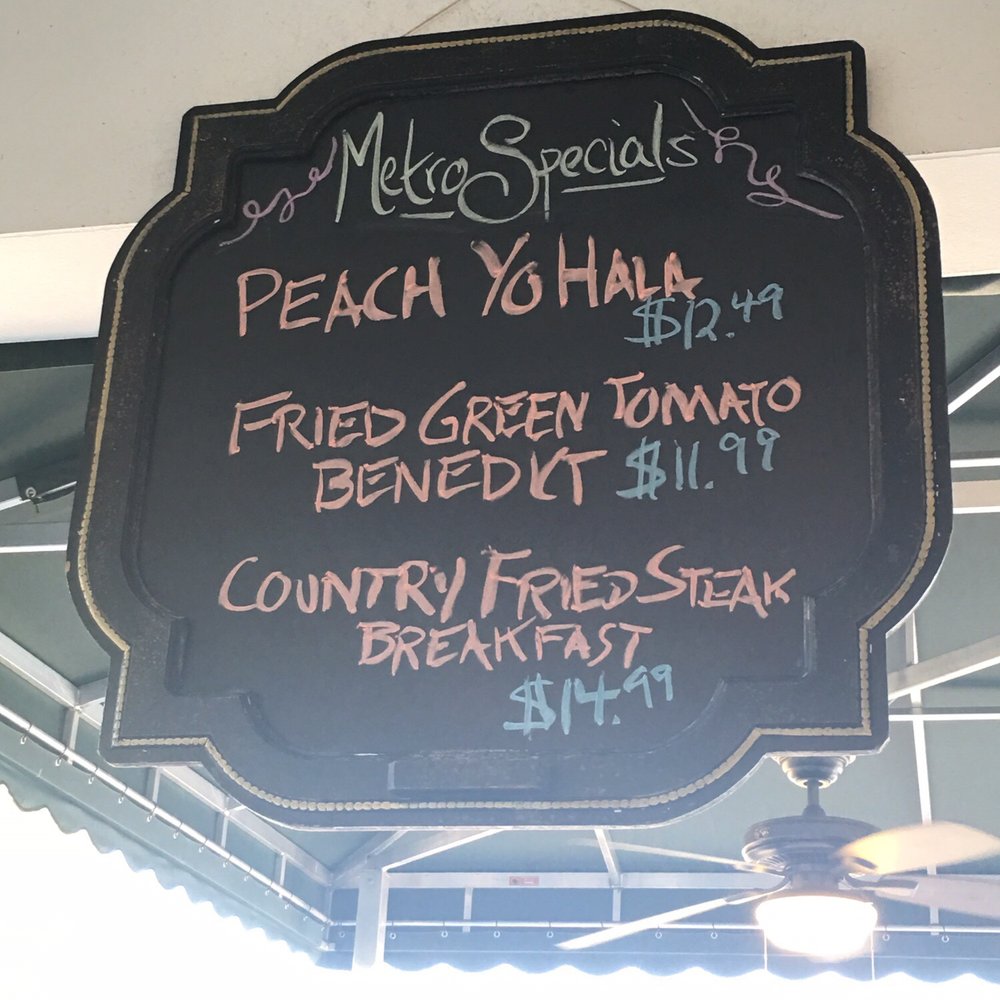 Metro Specials
PEACH YO HALA
$12.49
FRIED GREEN TOMATO
BENEDICT $11.99
COUNTRY FRIED STEAK
BREAKFAST
$14.99